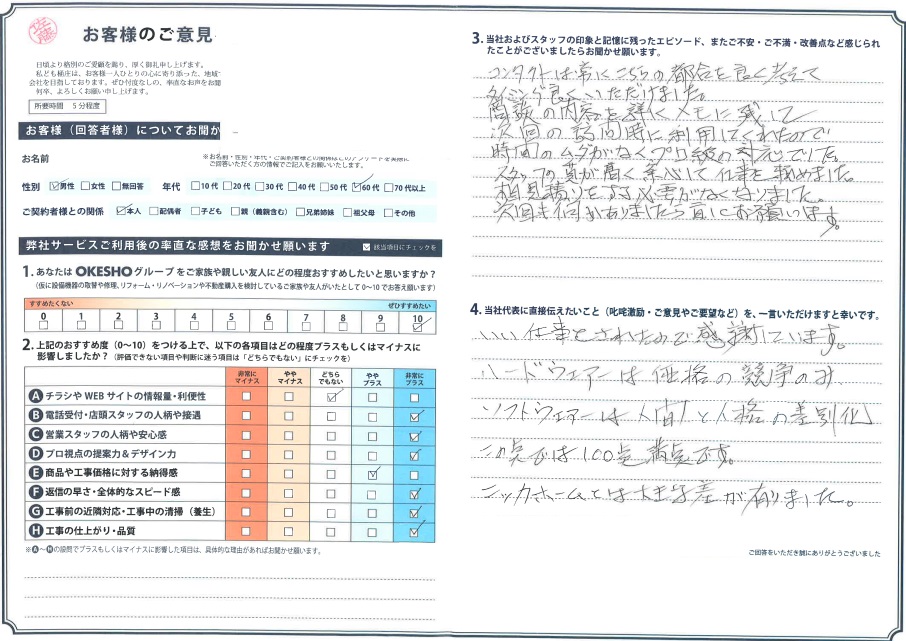 佐藤
お客様のご意見
日頃より格別のご愛顧を賜り、厚く御礼申し上げます。
私ども桶庄は、お客様一人ひとりの心に寄り添った、地域
会社を目指しております。ぜひ忖度なしの、率直なお声をお聞
何卒、よろしくお願い申し上げます。
所要時間 5分程度
お客様（回答者様）についてお聞か
お名前
ご回答いただく方の情報でご記入をお願いいたします。
性別 ☑男性 □女性 □無回答 年代 □10代 □20代 □30代 □40代 □50代 ☑60代 □70代以上
ご契約者様との関係 ☑本人 □配偶者 □子ども □親（義親含む） □兄弟姉妹 □祖父母 □その他
弊社サービスご利用後の率直な感想をお聞かせ願います ☑ 該当項目にチェックを
1. あなたは OKESHO グループ をご家族や親しい友人にどの程度おすすめしたいと思いますか？
（仮に設備機器の取替や修理、リフォーム・リノベーションや不動産購入を検討しているご家族や友人がいたとして0〜10でお答え願います）
すすめたくない ぜひすすめたい
0 1 2 3 4 5 6 7 8 9 10
□ □ □ □ □ □ □ □ □ □ ☑
2. 上記のおすすめ度（0〜10）をつける上で、以下の各項目はどの程度プラスもしくはマイナスに
影響しましたか？（評価できない項目や判断に迷う項目は「どちらでもない」にチェックを）
非常にマイナス ややマイナス どちらでもない ややプラス 非常にプラス
A チラシやWEBサイトの情報量・利便性 □ □ ☑ □ □
B 電話受付・店頭スタッフの人柄や接遇 □ □ □ □ ☑
C 営業スタッフの人柄や安心感 □ □ □ □ ☑
D プロ視点の提案力＆デザイン力 □ □ □ □ ☑
E 商品や工事価格に対する納得感 □ □ □ ☑ □
F 返信の早さ・全体的なスピード感 □ □ □ □ ☑
G 工事前の近隣対応・工事中の清掃（養生） □ □ □ □ ☑
H 工事の仕上がり・品質 □ □ □ □ ☑
※A〜Hの設問でプラスもしくはマイナスに影響した項目は、具体的な理由があればお聞かせ願います。
3. 当社およびスタッフの印象と記憶に残ったエピソード、またご不安・ご不満・改善点など感じられ
たことがございましたらお聞かせ願います。
コンタクトは常にこちらの都合を良く考えて
タイミング良くいただけました。
商談の内容を詳くメモに残して
次回の訪問時に利用してくれたので
時間のムダがなくプロ級の対応でした。
スタッフの質が高く安心して仕事を頼めました。
相見積りをする必要がなくなりました。
次回も何かありましたら直にお願いします。
4. 当社代表に直接伝えたいこと（叱咤激励・ご意見やご要望など）を、一言いただけますと幸いです。
いい仕事をされたので感謝しています。
ハードウェアーは価格の競争のみ
ソフトウェアーは人間と人格の差別化
この点では100点満点です。
ニッカホームとは大きな差が有りました。
ご回答をいただき誠にありがとうございました